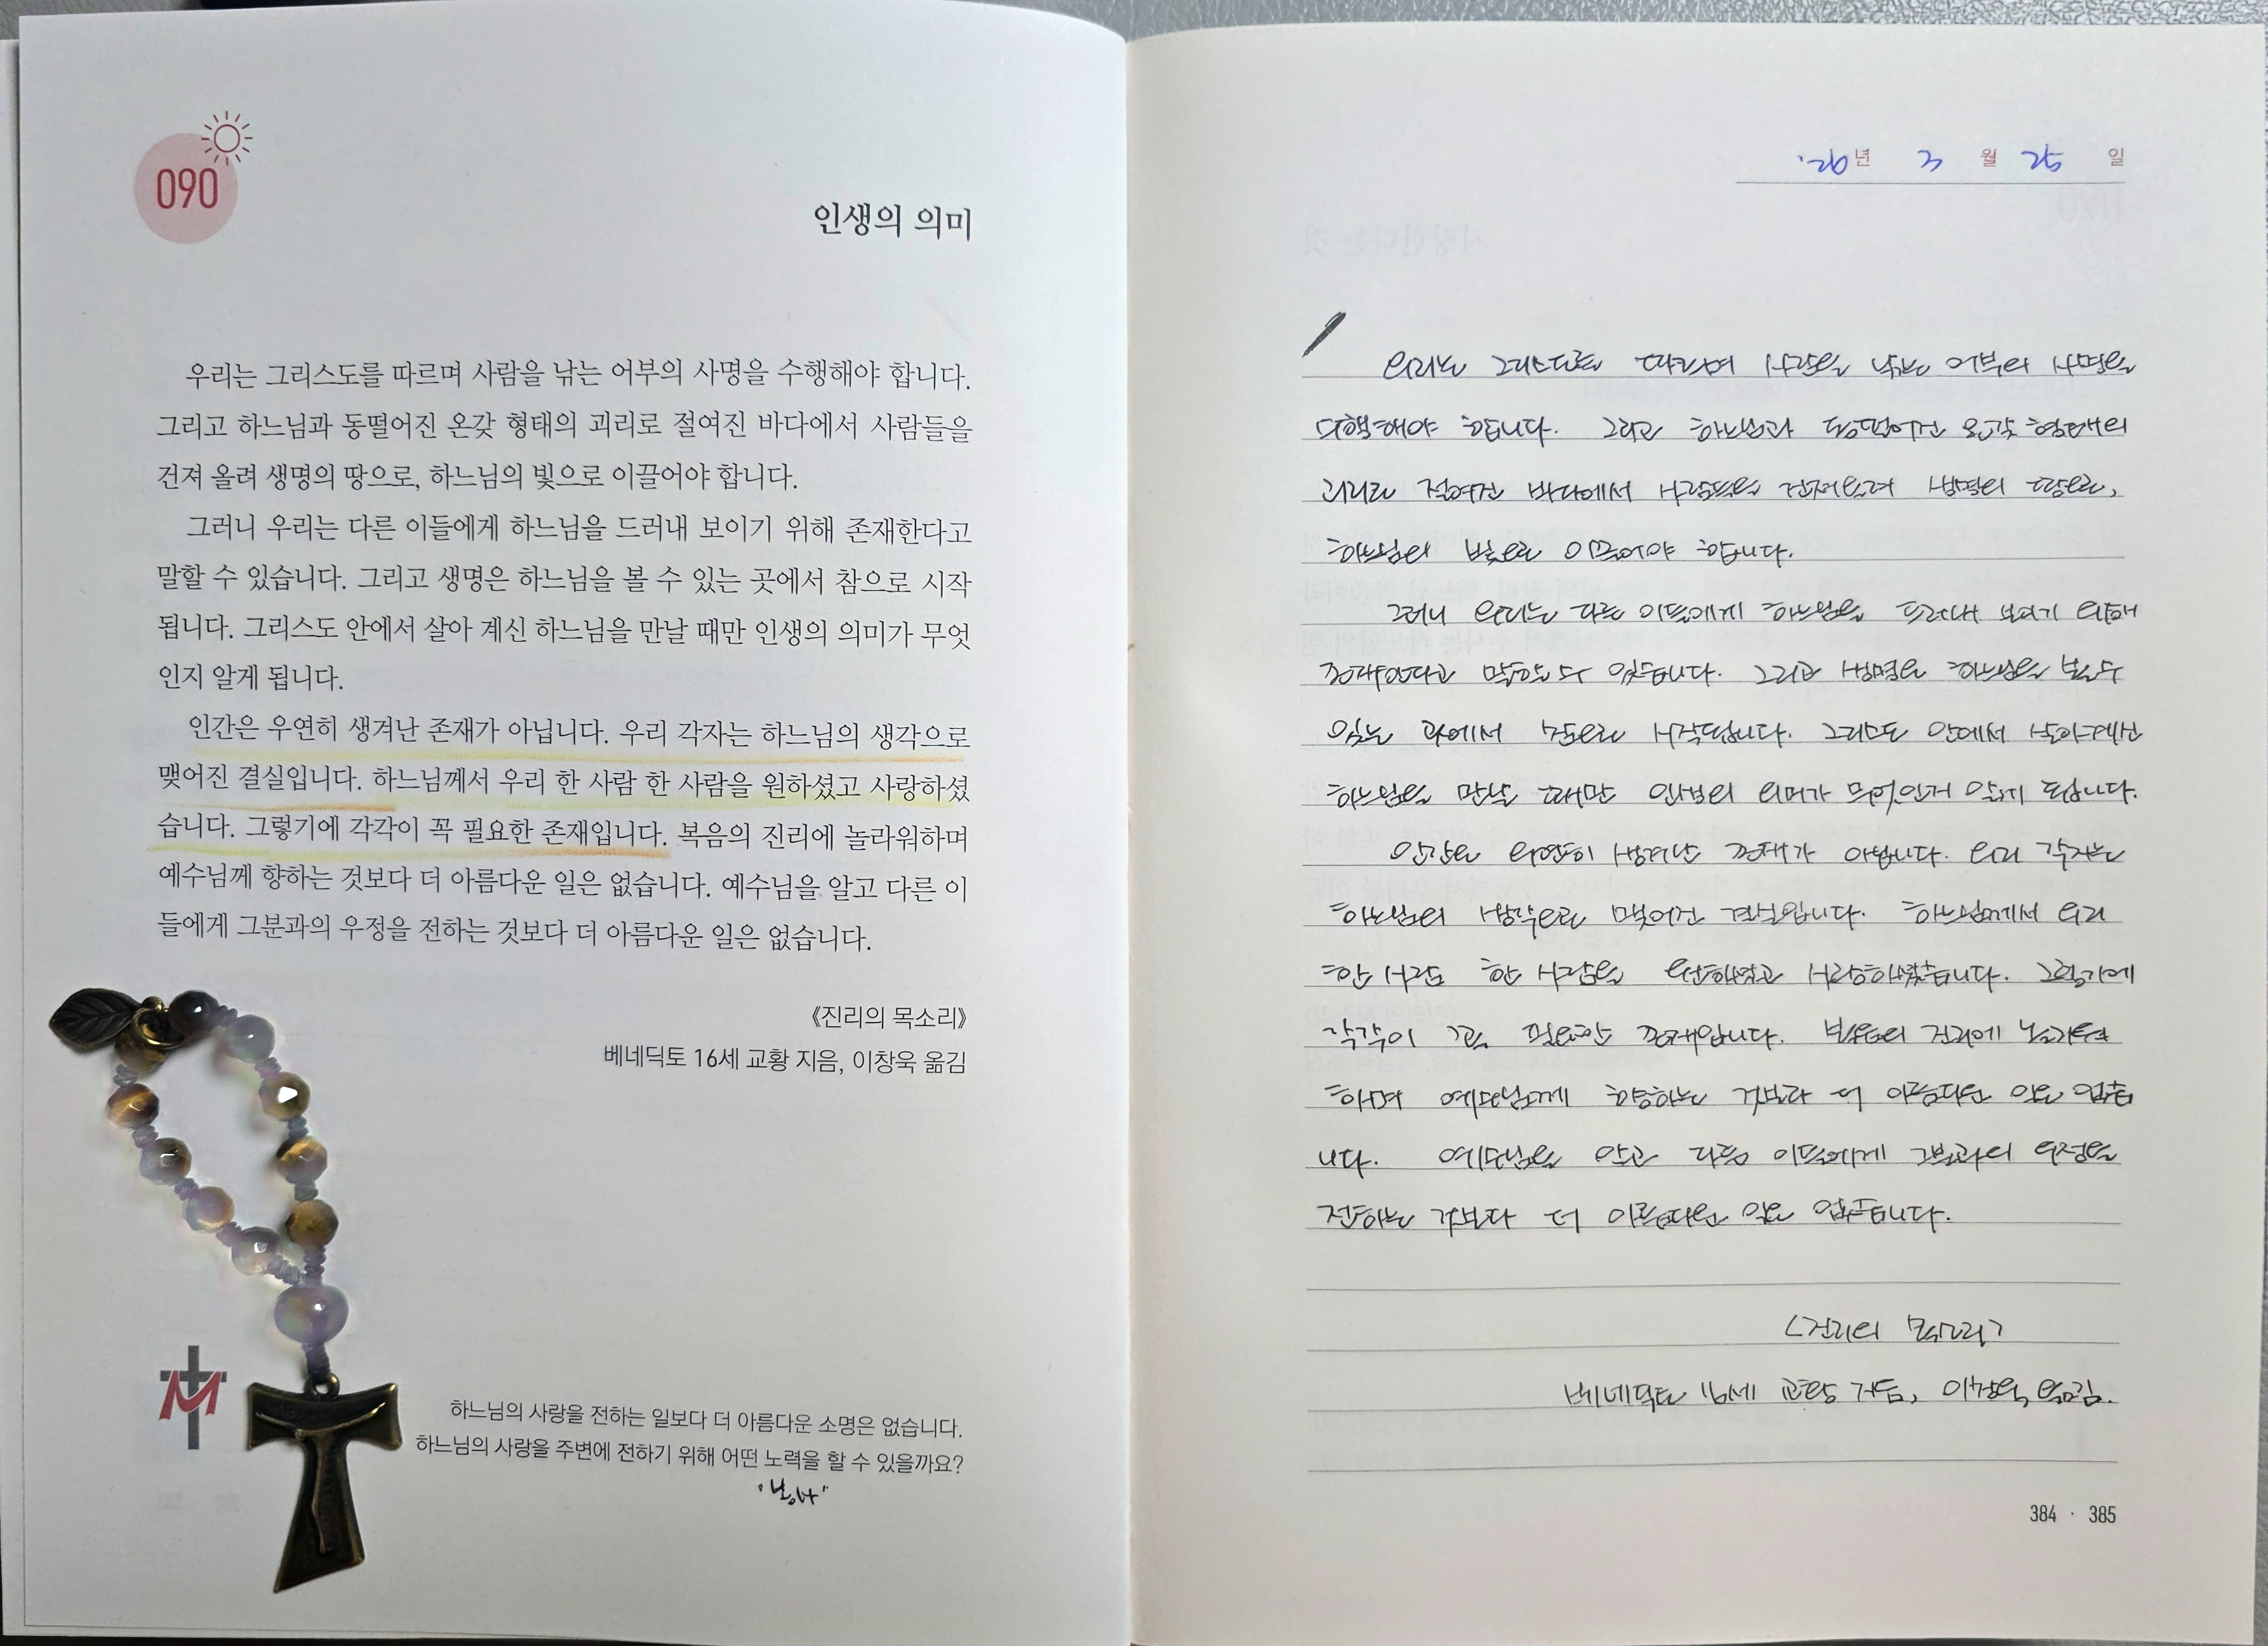 090
인생의 의미
우리는 그리스도를 따르며 사람을 낚는 어부의 사명을 수행해야 합니다.
그리고 하느님과 동떨어진 온갖 형태의 괴리로 절여진 바다에서 사람들을
건져 올려 생명의 땅으로, 하느님의 빛으로 이끌어야 합니다.
그러니 우리는 다른 이들에게 하느님을 드러내 보이기 위해 존재한다고
말할 수 있습니다. 그리고 생명은 하느님을 볼 수 있는 곳에서 참으로 시작
됩니다. 그리스도 안에서 살아 계신 하느님을 만날 때만 인생의 의미가 무엇
인지 알게 됩니다.
인간은 우연히 생겨난 존재가 아닙니다. 우리 각자는 하느님의 생각으로
맺어진 결실입니다. 하느님께서 우리 한 사람 한 사람을 원하셨고 사랑하셨
습니다. 그렇기에 각각이 꼭 필요한 존재입니다. 복음의 진리에 놀라워하며
예수님께 향하는 것보다 더 아름다운 일은 없습니다. 예수님을 알고 다른 이
들에게 그분과의 우정을 전하는 것보다 더 아름다운 일은 없습니다.
《진리의 목소리》
베네딕토 16세 교황 지음, 이창욱 옮김
하느님의 사랑을 전하는 일보다 더 아름다운 소명은 없습니다.
하느님의 사랑을 주변에 전하기 위해 어떤 노력을 할 수 있을까요?
'26년 3월 25일
우리는 그리스도를 따르며 사람을 낚는 어부의 사명을
수행해야 합니다. 그리고 하느님과 동떨어진 온갖 형태의
괴리로 절여진 바다에서 사람들을 건져올려 생명의 땅으로,
하느님의 빛으로 이끌어야 합니다.
그러니 우리는 다른 이들에게 하느님을 드러내 보이기 위해
존재한다고 말할 수 있습니다. 그리고 생명은 하느님을 볼 수
있는 곳에서 참으로 시작됩니다. 그리스도 안에서 살아계신
하느님을 만날 때만 인생의 의미가 무엇인지 알게 됩니다.
인간은 우연히 생겨난 존재가 아닙니다. 우리 각자는
하느님의 생각으로 맺어진 결실입니다. 하느님께서 우리
한 사람 한 사람을 원하셨고 사랑하셨습니다. 그렇기에
각각이 꼭 필요한 존재입니다. 복음의 진리에 놀라워
하며 예수님께 향하는 것보다 더 아름다운 일은 없습
니다. 예수님을 알고 다른 이들에게 그분과의 우정을
전하는 것보다 더 아름다운 일은 없습니다.
<진리의 목소리>
베네딕토 16세 교황 지음, 이창욱 옮김.
384 · 385